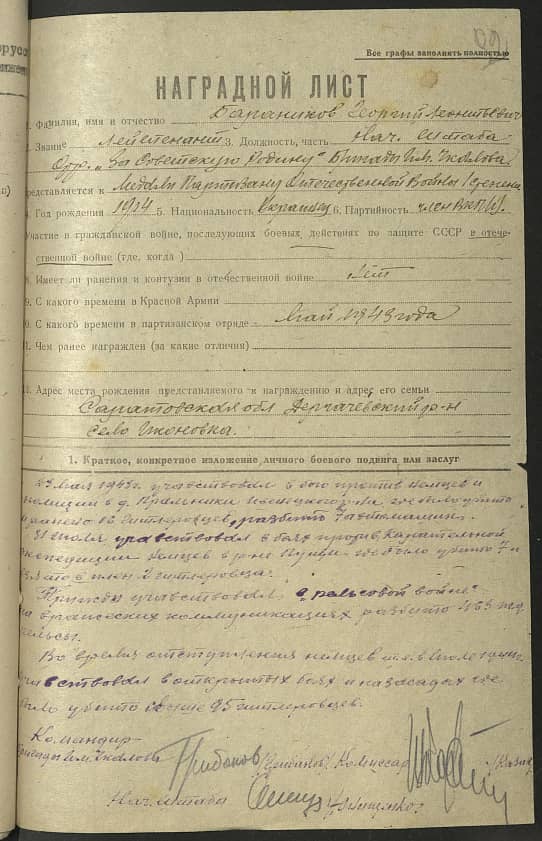 Все графы заполнять полностью
НАГРАДНОЙ ЛИСТ
1. Фамилия, имя и отчество Баранников Георгий Леонтьевич
2. Звание Лейтенант 3. Должность, часть Нач. Штаба
Отр. "За Советскую Родину" Бригады им. Чкалова
Представляется к Медали Партизану Отечественной Войны I степени
4. Год рождения 1914 5. Национальность Украинец 6. Партийность член ВКП(б).
Участие в гражданской войне, последующих боевых действиях по защите СССР в отече-
ственной войне (где, когда)
8. Имеет ли ранения и контузии в отечественной войне Нет
9. С какого времени в Красной Армии
10. С какого времени в партизанском отряде Май 1943 года
11. Чем ранее награжден (за какие отличия)
12. Адрес места рождения представляемого к награждению и адрес его семьи
Саратовская обл Дергачёвский р-н
село
1. Краткое, конкретное изложение личного боевого подвига или заслуг
Мая 1943г. участвовал в бою против немцев и
полиции в д. Ивенецкого р-на где было убито
и ранено 16 гитлеровцев, разбито 7 автомашин.
Июля участвовал в боях против карательной
экспедиции немцев в р-не Пущи где было убито 7 и
взято в плен 2 гитлеровца.
участвовал в рельсовой войне
на вражеских коммуникациях разбито 465 шт.
рельсы.
Во время отступления немцев в июле
участвовал в открытых боях и на засадах где
было убито свыше 95 гитлеровцев.
Командир
бригады им. Чкалова Грибанов /Грибанов/ Комиссар
Нач. штаба